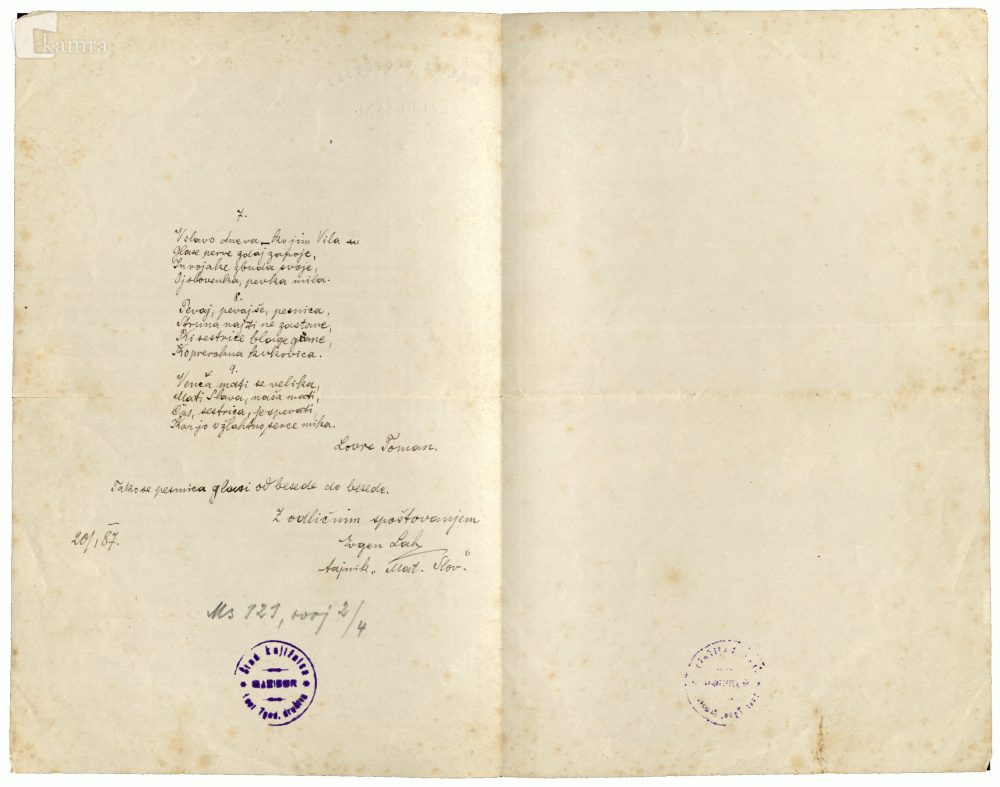 kamra
7.
Velavo dneva – ko jim Vila
Glase perve zdaj zapoje,
In rojake zbuda svoje,
Oj slovenka, pevka mila.
8.
Pevaj, pevaj še, pesnica,
Struna najti ne zastane,
Ki sestrice blage gane,
Koprerohna
9.
Venča mati se velika,
Mati Slava, naša mati,
Čas, sestrica, je spevati
Kar jo v žlahtno serce mika.
Lovre Toman.
Tako se pesmica glasi od besede do besede.
Z odličnim spoštovanjem
20/I 87.
Evgen Lah
tajnik „Mat. Slov."
Ms 121, ovoj 2/4
Štud. knjižnica
MARIBOR
zgod. društva